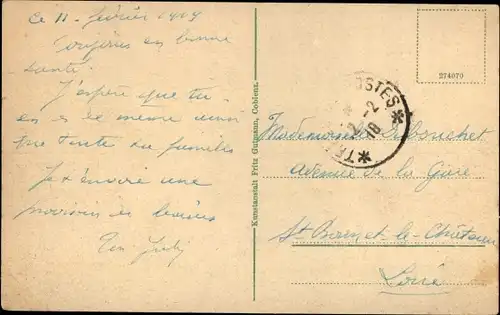 Ce 11 février 1919
Toujours en bonne
santé.
J'espère que tu
en es de même ainsi
que toute ta famille
Je t'envoie une
de
Ton
Kunstanstalt Fritz Gutmann, Coblenz.
274070
POSTES
12-2
Mademoiselle
Avenue de la Gare
St Bonnet le Château
Loire